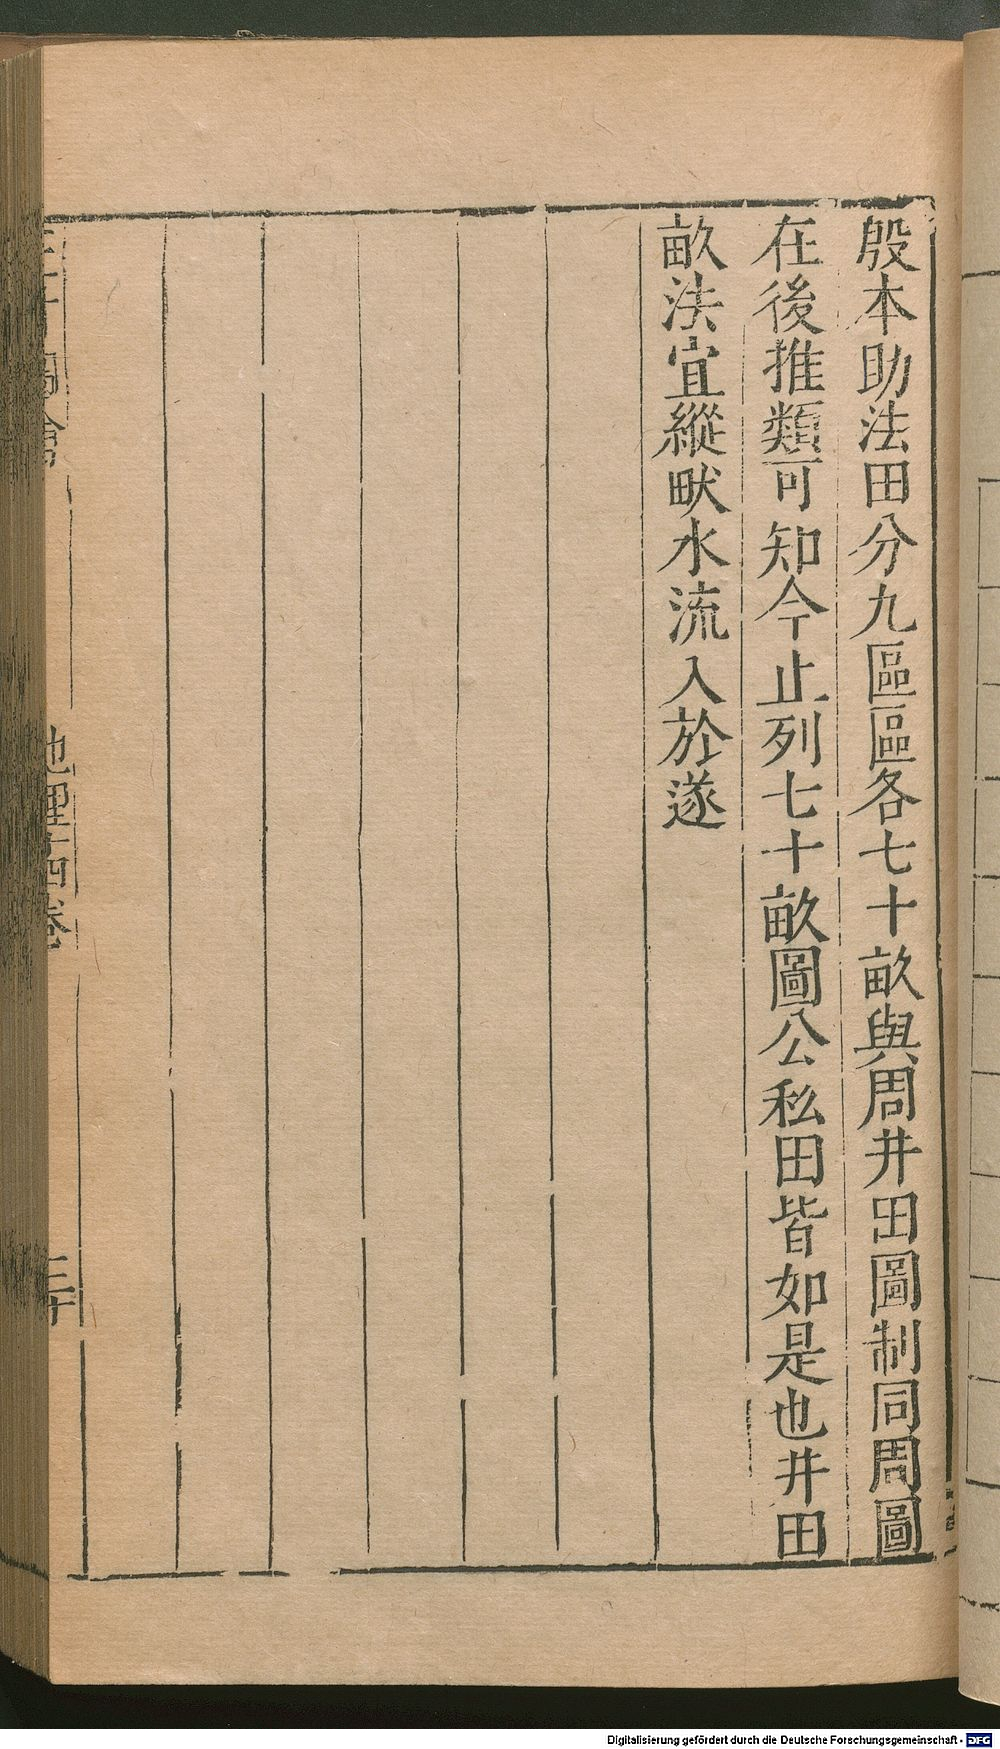 殷本助法田分九區區各七十畝與周井田圖制同周圖
在後推類可知今止列七十畝圖公私田皆如是也井田
畝法宜縱畎水流入於遂
地理十四卷
三十
Digitalisierung gefördert durch die Deutsche Forschungsgemeinschaft - DFG